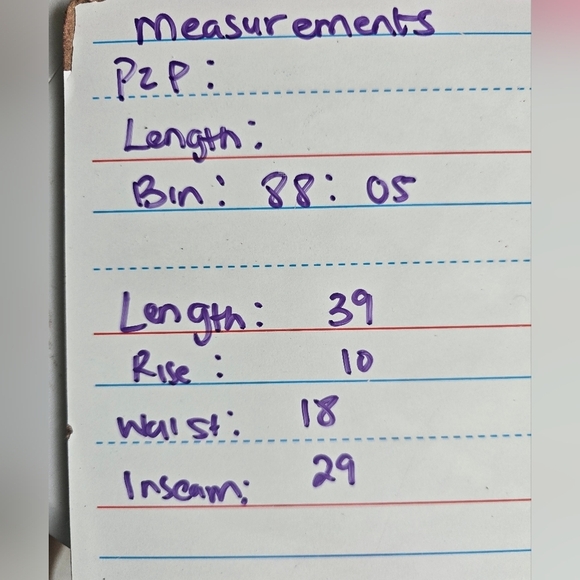 Measurements
P2P:
Length:
Bin: 88: 05
Length: 39
Rise: 10
Waist: 18
Inseam: 29